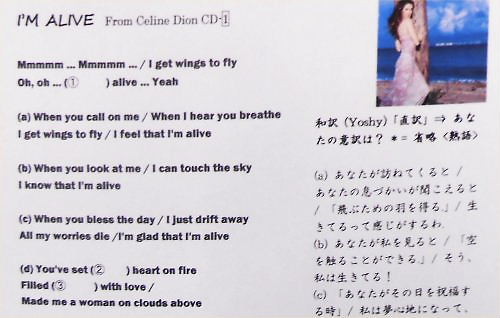 I'M ALIVE From Celine Dion CD-1
Mmmmm ... Mmmmm ... / I get wings to fly
Oh, oh ... (① ) alive ... Yeah
(a) When you call on me / When I hear you breathe
I get wings to fly / I feel that I'm alive
(b) When you look at me / I can touch the sky
I know that I'm alive
(c) When you bless the day / I just drift away
All my worries die /I'm glad that I'm alive
(d) You've set (② ) heart on fire
Filled (③ ) with love /
Made me a woman on clouds above
和訳 (Yoshy)「直訳」⇒ あな
たの意訳は? * = 省略 〈熟語〉
(a) あなたが訪ねてくると /
あなたの息づかいが聞こえると
/ 「飛ぶための羽を得る。」/ 生
きてるって感じがするわ.
(b) あなたが私を見ると / 「空
を触ることができる」/ そう、
私は生きてる!
(c) 「あなたがその日を祝福す
る時」/ 私は夢心地になって、